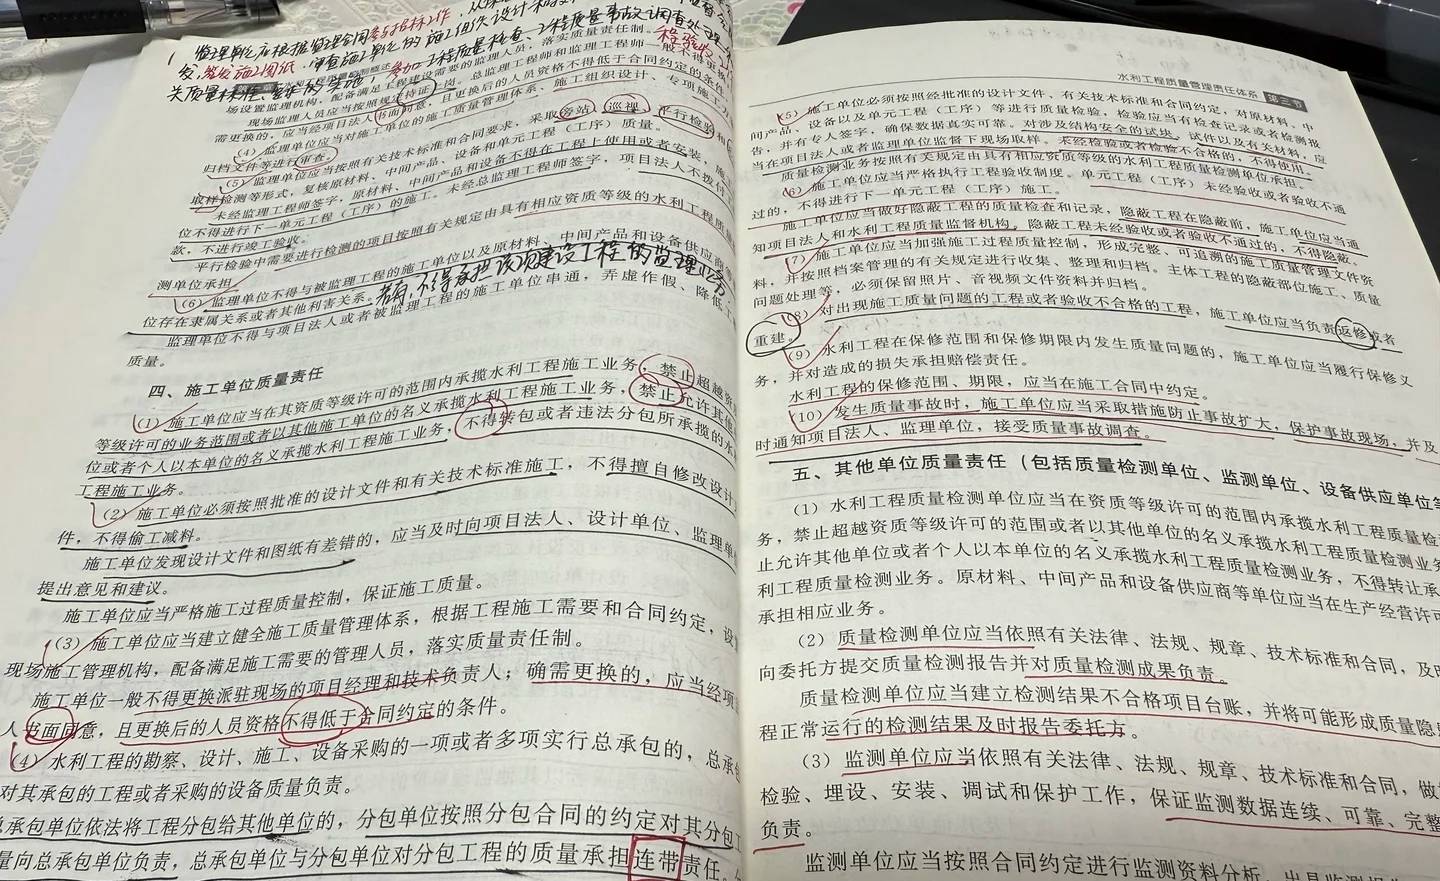 1 监理单位应根据监理合同参与招标工作，从
发，签发施工图纸，审查施工单位的施工组织设计和
参加工程质量检查、工程质量事故调查处理
工程验收工作
场设置监理机构，配备满足工程建设需要的监理人员，落实质量责任制。
现场监理人员应当按照规定持证上岗。总监理工程师和监理工程师一般不得更换
需更换的，应当经项目法人书面同意，且更换后的人员资格不得低于合同约定的条件
（4）监理单位应当对施工单位的施工质量管理体系、施工组织设计、专项施工方
归档文件等进行审查。
（5）监理单位应当按照有关技术标准和合同要求，采取旁站、巡视、平行检验和
取样检测等形式，复核原材料、中间产品、设备和单元工程（工序）质量。
未经监理工程师签字，原材料、中间产品和设备不得在工程上使用或者安装，施工
位不得进行下一单元工程（工序）的施工。未经总监理工程师签字，项目法人不拨付工
款，不进行竣工验收。
平行检验中需要进行检测的项目按照有关规定由具有相应资质等级的水利工程质量
测单位承担。
（6）监理单位不得与被监理工程的施工单位以及原材料、中间产品和设备供应商等
位存在隶属关系或者其他利害关系。若有，不得承担该项建设工程的监理业务
监理单位不得与项目法人或者被监理工程的施工单位串通，弄虚作假、降低工
质量。
四、施工单位质量责任
（1）施工单位应当在其资质等级许可的范围内承揽水利工程施工业务，禁止超越资
等级许可的业务范围或者以其他施工单位的名义承揽水利工程施工业务，禁止允许其他
位或者个人以本单位的名义承揽水利工程施工业务，不得转包或者违法分包所承揽的水
工程施工业务。
（2）施工单位必须按照批准的设计文件和有关技术标准施工，不得擅自修改设计
件，不得偷工减料。
施工单位发现设计文件和图纸有差错的，应当及时向项目法人、设计单位、监理单
提出意见和建议。
施工单位应当严格施工过程质量控制，保证施工质量。
（3）施工单位应当建立健全施工质量管理体系，根据工程施工需要和合同约定，设
现场施工管理机构，配备满足施工需要的管理人员，落实质量责任制。
施工单位一般不得更换派驻现场的项目经理和技术负责人；确需更换的，应当经项
人书面同意，且更换后的人员资格不得低于合同约定的条件。
（4）水利工程的勘察、设计、施工、设备采购的一项或者多项实行总承包的，总承
对其承包的工程或者采购的设备质量负责。
总承包单位依法将工程分包给其他单位的，分包单位按照分包合同的约定对其分包工
量向总承包单位负责，总承包单位与分包单位对分包工程的质量承担连带责任。
水利工程质量管理责任体系 第三节
（5）施工单位必须按照经批准的设计文件、有关技术标准和合同约定，对原材料、中
间产品、设备以及单元工程（工序）等进行质量检验，检验应当有检查记录或者检测报
告，并有专人签字，确保数据真实可靠。对涉及结构安全的试块、试件以及有关材料，应
当在项目法人或者监理单位监督下现场取样。未经检验或者检验不合格的，不得使用。
质量检测业务按照有关规定由具有相应资质等级的水利工程质量检测单位承担。
（6）施工单位应当严格执行工程验收制度。单元工程（工序）未经验收或者验收不通
过的，不得进行下一单元工程（工序）施工。
施工单位应当做好隐蔽工程的质量检查和记录，隐蔽工程在隐蔽前，施工单位应当通
知项目法人和水利工程质量监督机构。隐蔽工程未经验收或者验收不通过的，不得隐蔽。
（7）施工单位应当加强施工过程质量控制，形成完整、可追溯的施工质量管理文件资
料，并按照档案管理的有关规定进行收集、整理和归档。主体工程的隐蔽部位施工、质量
问题处理等，必须保留照片、音视频文件资料并归档。
（8）对出现施工质量问题的工程或者验收不合格的工程，施工单位应当负责返修或者
重建。
（9）水利工程在保修范围和保修期限内发生质量问题的，施工单位应当履行保修义
务，并对造成的损失承担赔偿责任。
水利工程的保修范围、期限，应当在施工合同中约定。
（10）发生质量事故时，施工单位应当采取措施防止事故扩大，保护事故现场，并及
时通知项目法人、监理单位，接受质量事故调查。
五、其他单位质量责任（包括质量检测单位、监测单位、设备供应单位等
（1）水利工程质量检测单位应当在资质等级许可的范围内承揽水利工程质量检
务，禁止超越资质等级许可的范围或者以其他单位的名义承揽水利工程质量检测业务
止允许其他单位或者个人以本单位的名义承揽水利工程质量检测业务，不得转让承
利工程质量检测业务。原材料、中间产品和设备供应商等单位应当在生产经营许可
承担相应业务。
（2）质量检测单位应当依照有关法律、法规、规章、技术标准和合同，及时
向委托方提交质量检测报告并对质量检测成果负责。
质量检测单位应当建立检测结果不合格项目台账，并将可能形成质量隐患
程正常运行的检测结果及时报告委托方。
（3）监测单位应当依照有关法律、法规、规章、技术标准和合同，做
检验、埋设、安装、调试和保护工作，保证监测数据连续、可靠、完整
负责。
监测单位应当按照合同约定进行监测资料分析，出具监测报